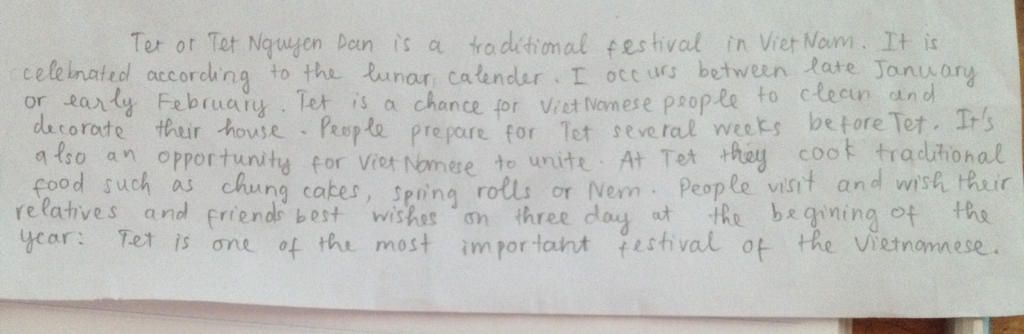 Tet or Tet Nguyen Dan is a traditional festival in Viet Nam. It is
celebrated according to the lunar calender. I occurs between late January
or early February. Tet is a chance for Viet Namese people to clean and
decorate their house. People prepare for Tet several weeks before Tet. It's
also an opportunity for Viet Namese to unite. At Tet they cook traditional
food such as chung cakes, spring rolls or Nem. People visit and wish their
relatives and friends best wishes on three day at the begining of the
year: Tet is one of the most important festival of the Vietnamese.